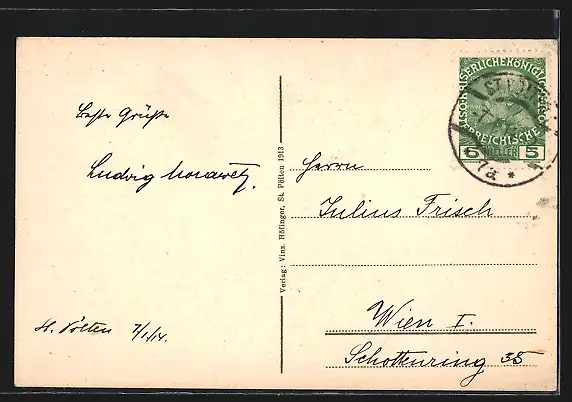 Beste Grüße
Ludwig Morawetz.
St. Pölten 7/1/14.
Verlag: Vinz. Höfinger, St. Pölten 1913
Herrn
Julius Frisch
Wien I.
Schottenring 35
KAISERLICHE KÖNIGLICHE
ÖSTERREICHISCHE
5 HELLER 5